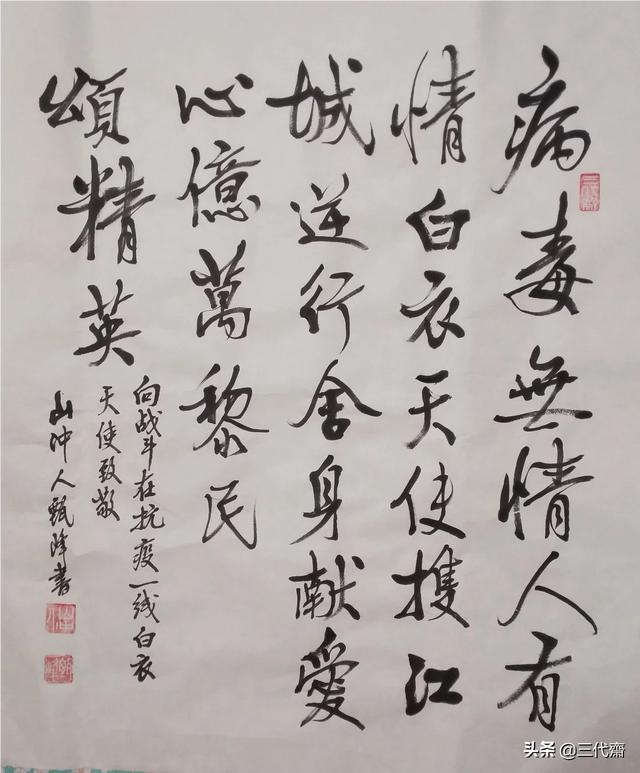 病毒無情人有
情白衣天使援江
城逆行舍身献愛
心億萬黎民
頌精英
向战斗在抗疫一线白衣
天使致敬
山冲人甄峰書
头条 @三代齋